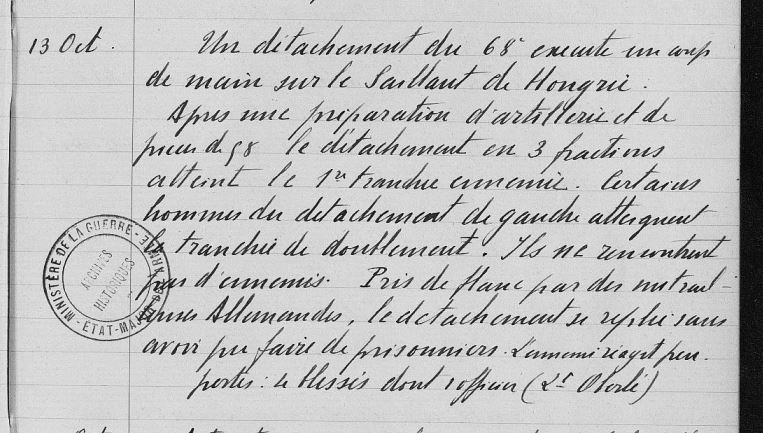 13 Oct.
Un détachement du 68e execute un coup
de main sur le Saillant de Hongrie.
Après une préparation d'artillerie et de
pneus de 58 le détachement en 3 fractions
atteint le 1re tranchée ennemie. Certains
hommes du detachement de gauche atteignent
la tranchée de doublement. Ils ne rencontrent
pas d'ennemis. Pris de flanc par des mitrail-
leuses Allemandes, le détachement se replie sans
avoir pu faire de prisonniers. L'ennemi réagit peu.
pertes: blessés dont 1 officier (Lt Oberlé)
MINISTÈRE DE LA GUERRE - ETAT-MAJOR DE L'ARMÉE -
ARCHIVES
HISTORIQUES